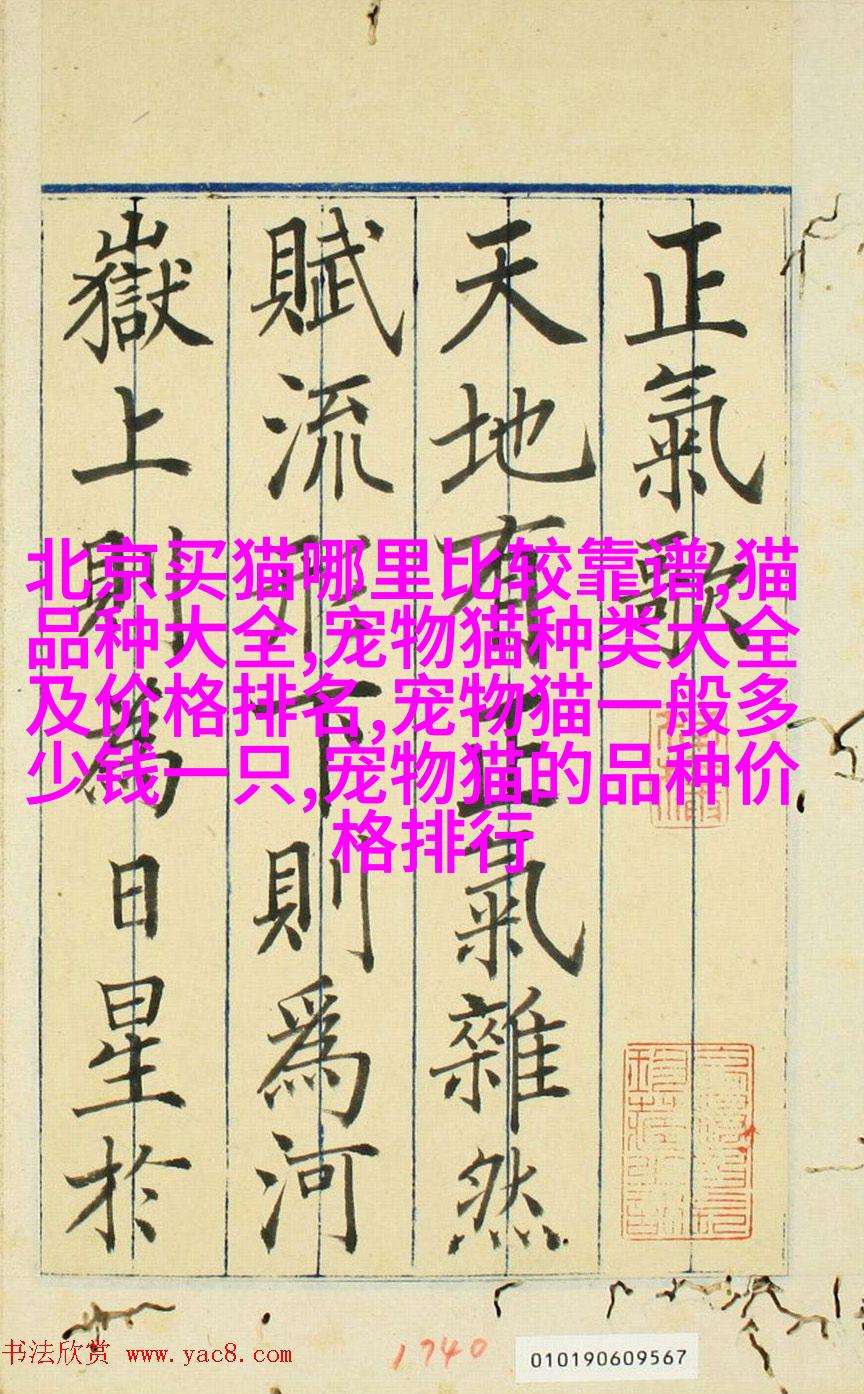 正氣歌
天地有正氣雜然
賦流形下則爲河
嶽上則爲日星於
北京买猫哪里比较靠谱,猫
品种大全,宠物猫种类大全
及价格排名,宠物猫一般多
少钱一只,宠物猫的品种价
格排行
书法欣赏 www.yac8.com
1740
010190609567